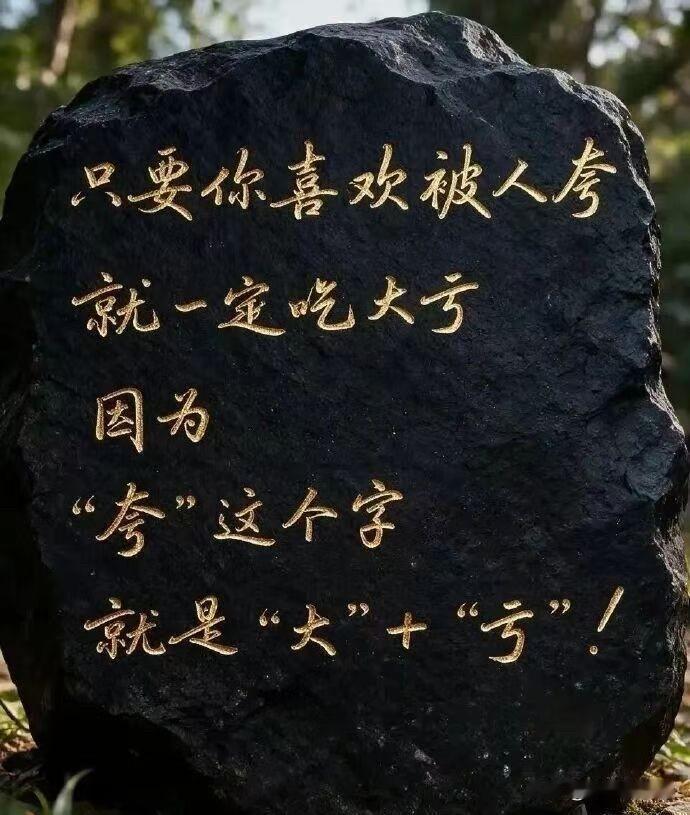 只要你喜欢被人夸
就一定吃大亏
因为
“夸”这个字
就是“大”+“亏”！